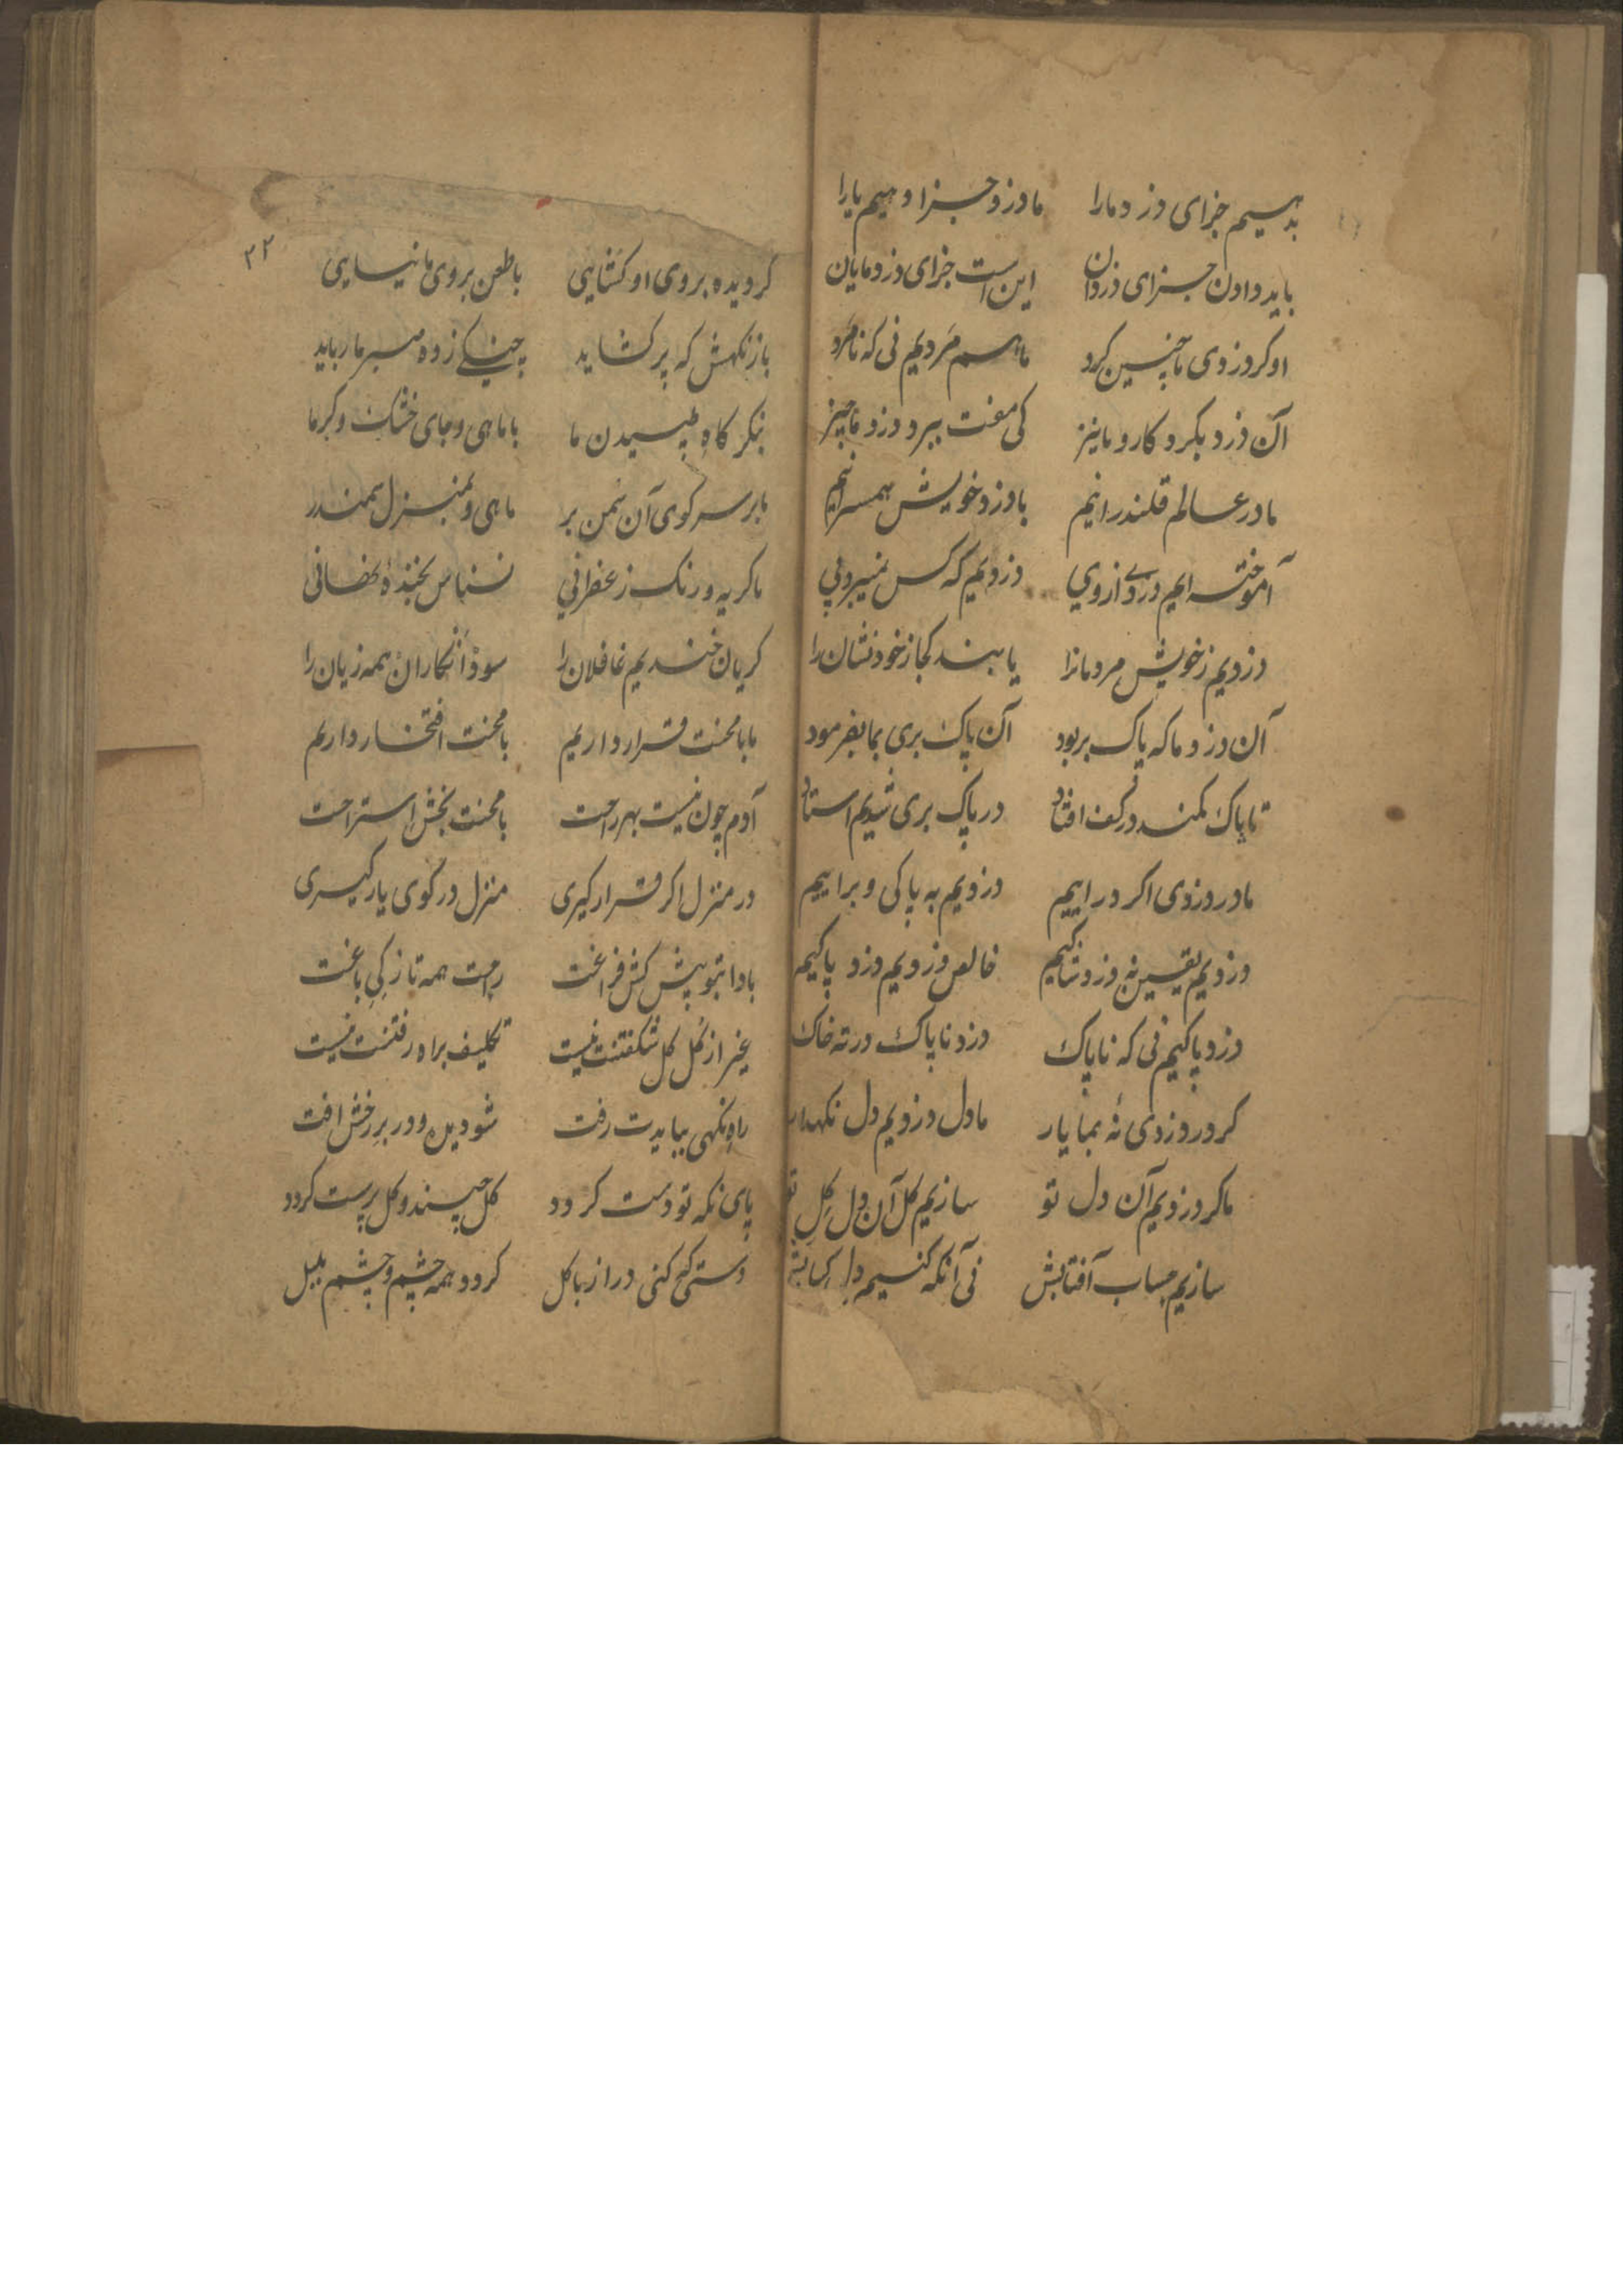 بدهیم جزای دزد ما را ما دزد و جزا دهیم یارا
باید دادن جزای دزدان این است جزای دزد مایان
او کرد دزدی ما چنین کرد ما هم مردیم نی که نامرد
آن دزد بکرد کار و ما نیز کی مفت ببرد دزد ما چیز
ما در عالم قلندرانیم با دزد خویش همسرانیم
آموخته ایم دزدی از وی دزدیم که کس نمیبرد پی
دزدیم ز خویش مردمانرا یابند کجا ز خود نشان را
آن دزد ما که پاک بربود آن پاک بری بما بفرمود
تا پاک کمند در کف افتاد در پاک بری شدیم استاد
ما در دزدی اکر در اییم دزدیم به پاکی و بر اییم
دزدیم یقین نه دزد شاکیم خالص دزدیم دزد پاکیم
دزد پاکیم نی که ناپاک دزد ناپاک در ته خاک
کر در دزدی نهٔ بما یار ما دل دزدیم دل نکهدار
ما کر دزدیم آن دل تو سازیم کل آن دل کل تو
سازیم حساب آفتابش نی آنکه کنیم دل کبابش
۳۲
کر دیده بروی او کشایی با طعن بروی ما نیایی
باز نکهش که پر کشاید چینکی زده سر ما رباید
بنکر کاه طپیدن ما با ماهی و جای خشک و کرما
ما بر سر کوی آن سمن بر ماهی و بمنزل سمندر
ما کریه و رنک زعفرانی نسناس بخندهٔ نهانی
کریان خندیم غافلان را سود انکاران همه زیان را
ما با محنت قرار داریم با محنت افتخار داریم
آدم چون نیست بهر راحت با محنت بخش استراحت
در منزل اکر قرار کیری منزل در کوی یار کیری
بادا بتو پیش کش فراغت راحت همه تازکی باغت
غیر از کل کل شکفتنت نیست تکلیف براه رفتنت نیست
راه نکهی ببایدت رفت شو دیده و در بر رخش افت
پای نکه تو دست کردد کل چیند و کل پرست کردد
دستی که کنی دراز با کل کردد همه چشم و چشم بلبل